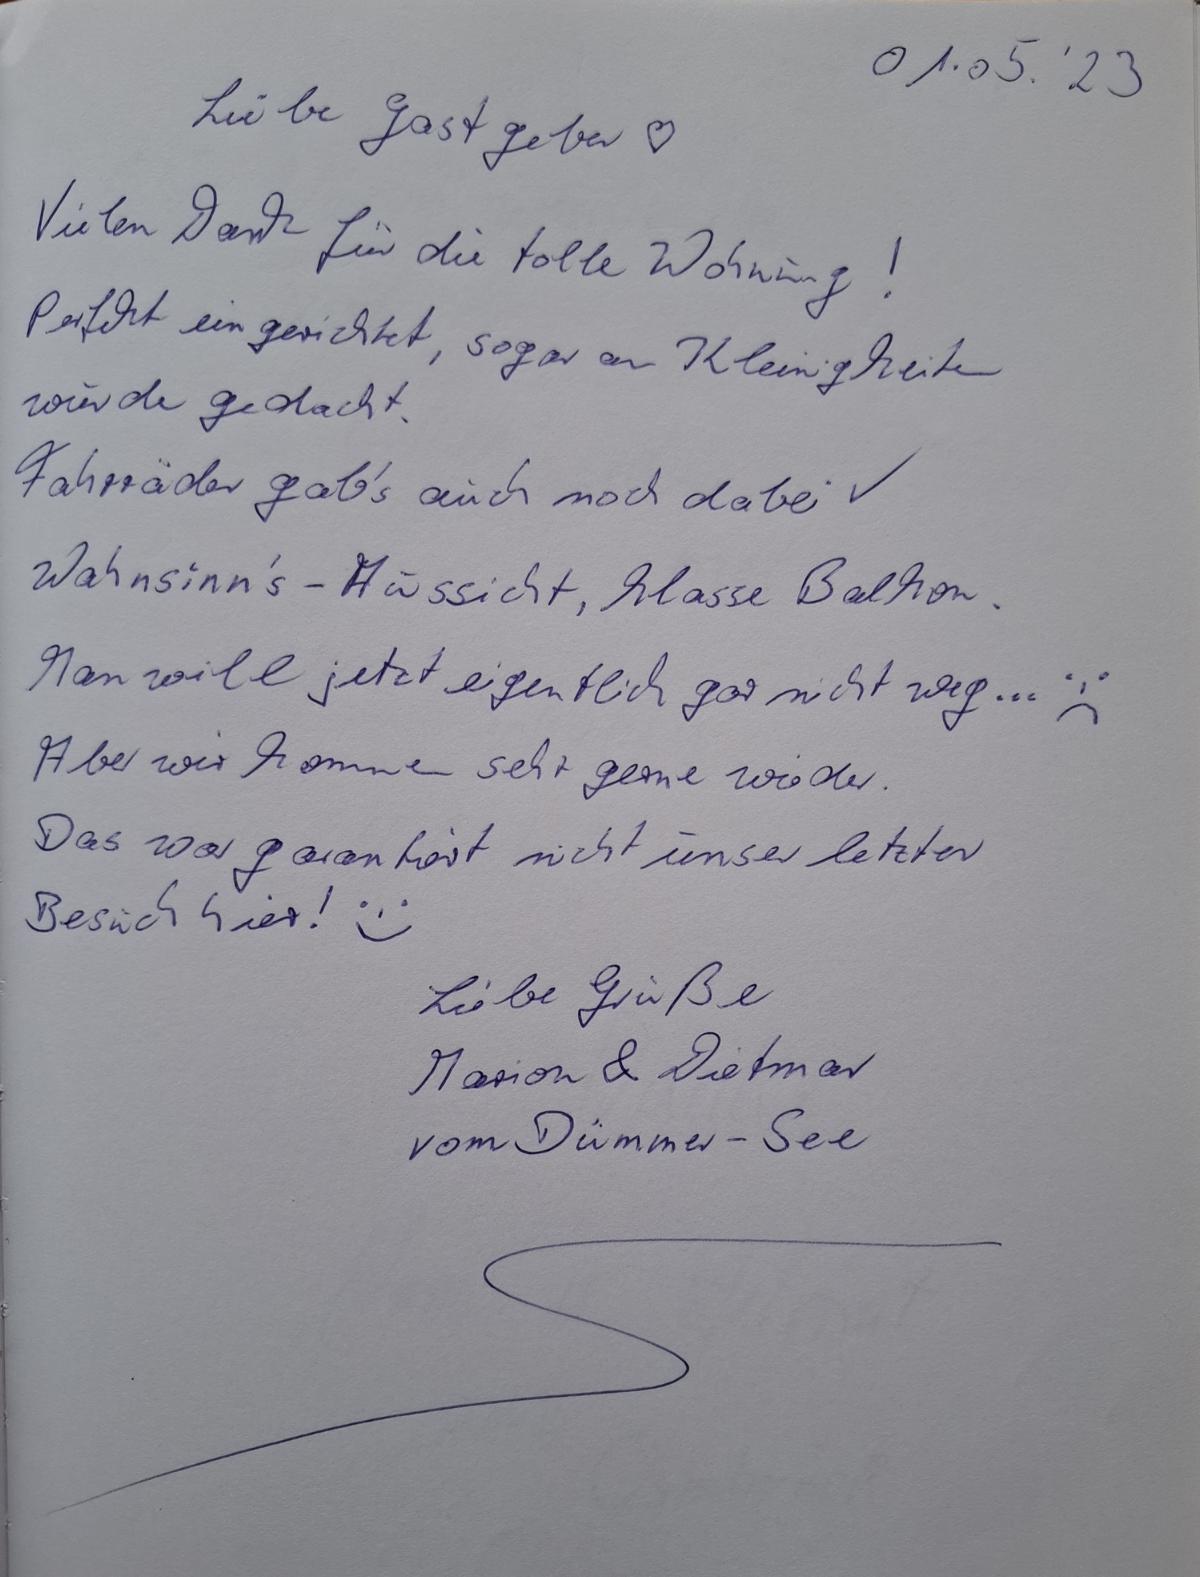 01.05.'23
Liebe Gastgeber ♡
Vielen Dank für die tolle Wohnung!
Perfekt eingerichtet, sogar an Kleinigkeiten
wurde gedacht.
Fahrräder gab's auch noch dabei ✓
Wahnsinn's - Aussicht, klasse Balkon.
Man will jetzt eigentlich gar nicht weg... ☹
Aber wir kommen sehr gerne wieder.
Das war garantiert nicht unser letzter
Besuch hier! ☺
Liebe Grüße
Marion & Dietmar
vom Dümmer-See